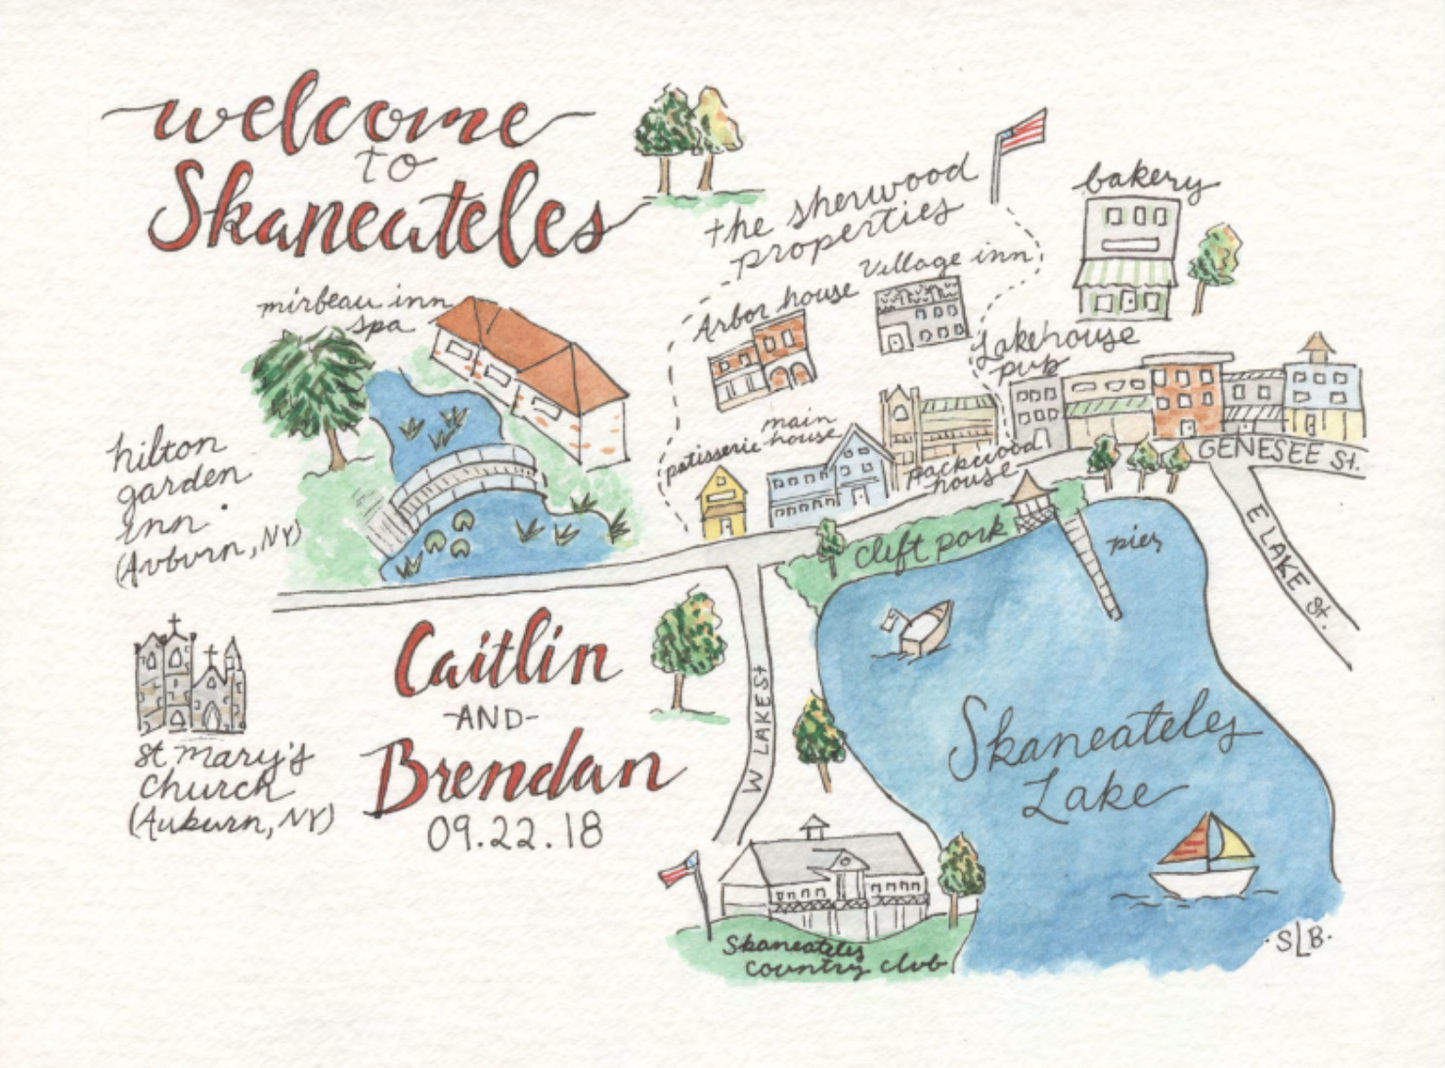 welcome
to
Skaneateles
the sherwood
properties
bakery
Village inn
Arbor house
mirbeau inn
spa
Lakehouse
pub
main
house
patisserie
packwood
house
GENESEE St.
hilton
garden
inn
(Auburn, NY)
clift park
pier
E LAKE St.
Caitlin
-AND-
Brendan
09.22.18
W LAKE St
St Mary's
Church
(Auburn, NY)
Skaneateles
Lake
Skaneateles
country club
·SLB·